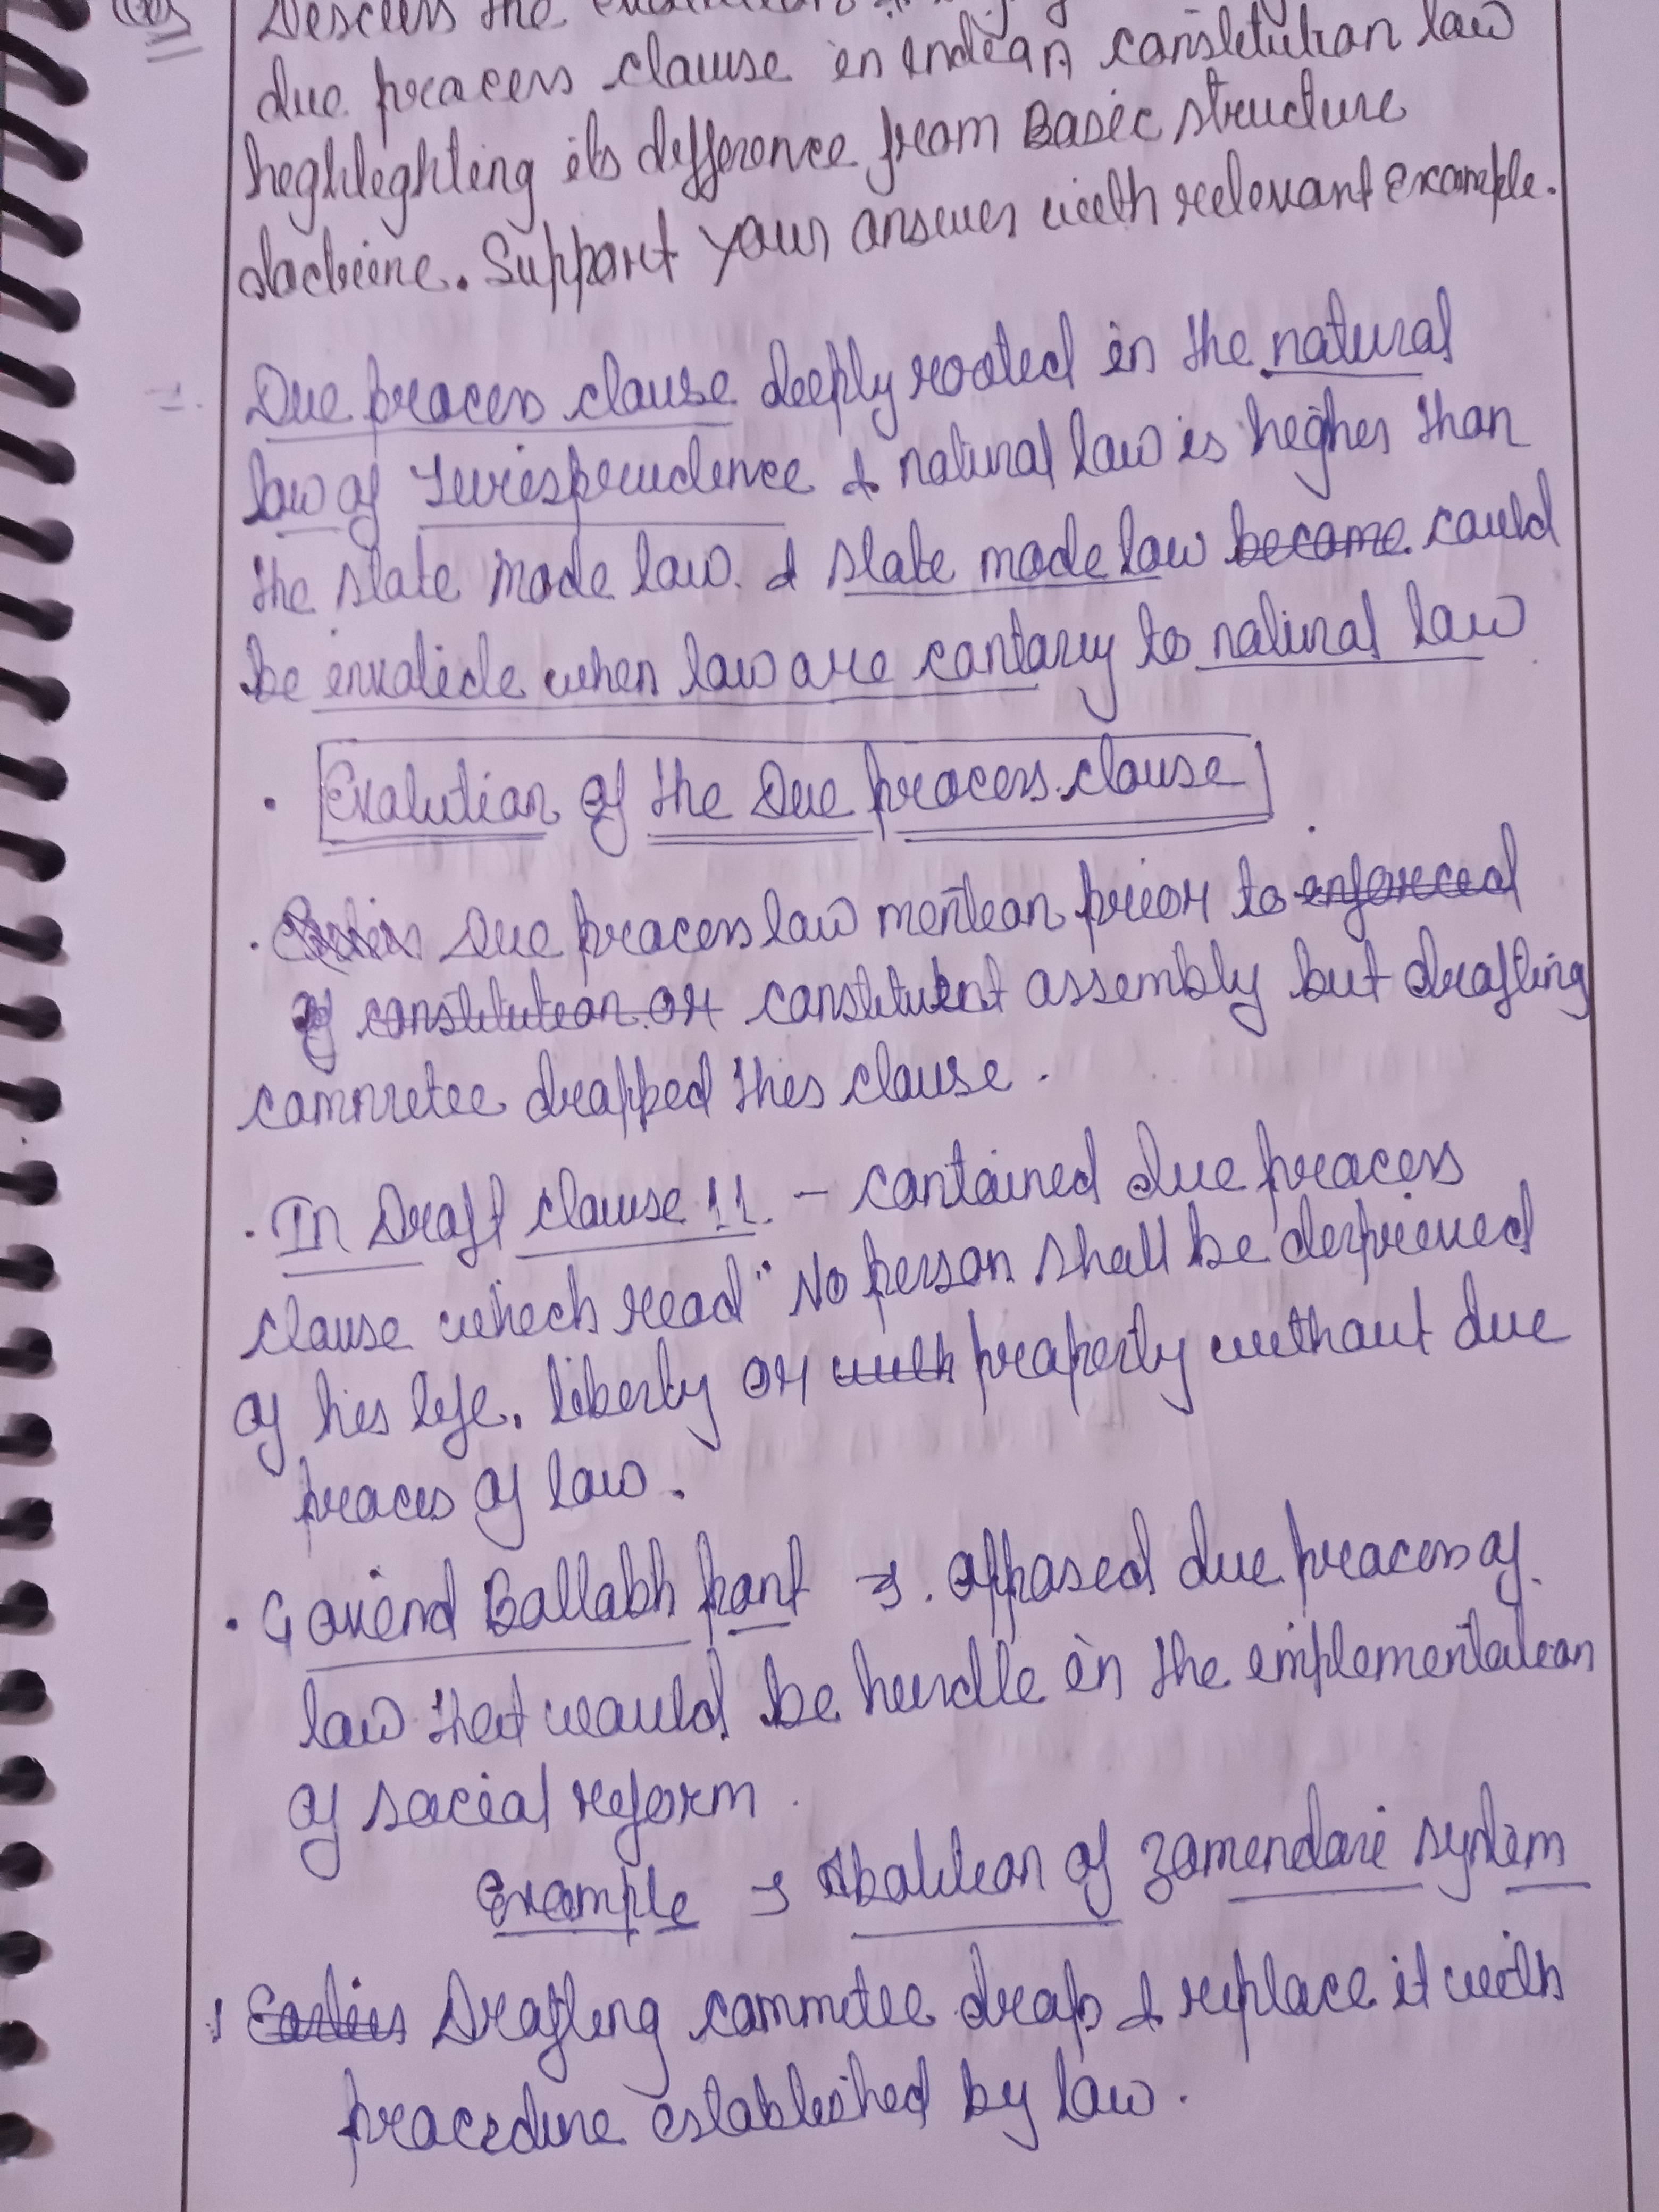 Discuss the
due process clause in Indian constitution law
highlighting its difference from Basic structure
doctrine. Support your answer with relevant example.
Due process clause deeply rooted in the natural
law of Jurisprudence & natural law is higher than
the state made law. & state made law became could
be invalide when law are contarry to natural law
• Evalution of the Due process clause
• Due process law mention prior to enforced
of constitution or constituent assembly but drafting
committee dropped this clause.
• In Draft clause 11. – contained due process
clause which read "No person shall be deprieved
of his life, liberty or with property without due
proces of law.
• Govind Ballabh pant → opposed due process of
law that would be hurdle in the implementation
of social reform.
Example → Abolition of zamendari system
Earlier Drafting committee drop & replace it with
procedure established by law.